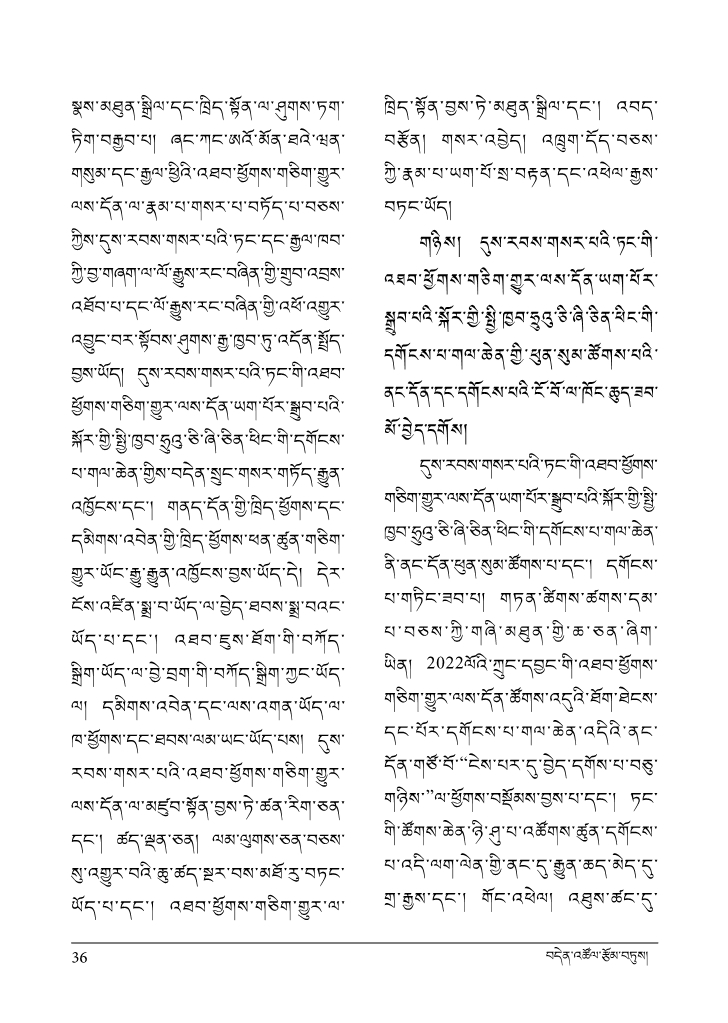 སྣས་མཐུན་སྒྲིལ་དང་ཁྲིད་སྟོན་ལ་ཤུགས་ཏག་
ཏིག་བརྒྱབ་པ། ཞང་ཀང་ཨའོ་མོན་ཐའེ་ཝན་
གསུམ་དང་རྒྱལ་ཕྱིའི་འཐབ་ཕྱོགས་གཅིག་གྱུར་
ལས་དོན་ལ་རྣམ་པ་གསར་པ་བཏོད་པ་བཅས་
ཀྱིས་དུས་རབས་གསར་པའི་ཏང་དང་རྒྱལ་ཁབ་
ཀྱི་བྱ་གཞག་ལ་ལོ་རྒྱུས་རང་བཞིན་གྱི་གྲུབ་འབྲས་
འཐོབ་པ་དང་ལོ་རྒྱུས་རང་བཞིན་གྱི་འཕོ་འགྱུར་
འབྱུང་བར་སྟོབས་ཤུགས་རྒྱ་ཁྱབ་ཏུ་འདོན་སྤྲོད་
བྱས་ཡོད། དུས་རབས་གསར་པའི་ཏང་གི་འཐབ་
ཕྱོགས་གཅིག་གྱུར་ལས་དོན་ཡག་པོར་སྒྲུབ་པའི་
སྐོར་གྱི་སྤྱི་ཁྱབ་ཧྲུའུ་ཅི་ཞི་ཅིན་ཕིང་གི་དགོངས་
པ་གལ་ཆེན་གྱིས་བདེན་སྲུང་གསར་གཏོད་རྒྱུན་
འཁྱོངས་དང་། གནད་དོན་གྱི་ཁྲིད་ཕྱོགས་དང་
དམིགས་འབེན་གྱི་ཁྲིད་ཕྱོགས་ཕན་ཚུན་གཅིག་
གྱུར་ཡོང་རྒྱུ་རྒྱུན་འཁྱོངས་བྱས་ཡོད་དེ། དེར་
ངོས་འཛིན་སྨྲ་བ་ཡོད་ལ་བྱེད་ཐབས་སྨྲ་བའང་
ཡོད་པ་དང་། འཐབ་ཇུས་ཐོག་གི་བཀོད་
སྒྲིག་ཡོད་ལ་བྱེ་བྲག་གི་བཀོད་སྒྲིག་ཀྱང་ཡོད་
ལ། དམིགས་འབེན་དང་ལས་འགན་ཡོད་ལ་
ཁ་ཕྱོགས་དང་ཐབས་ལམ་ཡང་ཡོད་པས། དུས་
རབས་གསར་པའི་འཐབ་ཕྱོགས་གཅིག་གྱུར་
ལས་དོན་ལ་མཛུབ་སྟོན་བྱས་ཏེ་ཚན་རིག་ཅན་
དང་། ཚད་ལྡན་ཅན། ལམ་ལུགས་ཅན་བཅས་
སུ་འགྱུར་བའི་ཆུ་ཚད་སྔར་བས་མཐོ་རུ་བཏང་
ཡོད་པ་དང་། འཐབ་ཕྱོགས་གཅིག་གྱུར་ལ་
ཁྲིད་སྟོན་བྱས་ཏེ་མཐུན་སྒྲིལ་དང་། འབད་
བརྩོན། གསར་འབྱེད། འཁྲུག་དོད་བཅས་
ཀྱི་རྣམ་པ་ཡག་པོ་སྲ་བརྟན་དང་འཕེལ་རྒྱས་
བཏང་ཡོད།
གཉིས། དུས་རབས་གསར་པའི་ཏང་གི་
འཐབ་ཕྱོགས་གཅིག་གྱུར་ལས་དོན་ཡག་པོར་
སྒྲུབ་པའི་སྐོར་གྱི་སྤྱི་ཁྱབ་ཧྲུའུ་ཅི་ཞི་ཅིན་ཕིང་གི་
དགོངས་པ་གལ་ཆེན་གྱི་ཕུན་སུམ་ཚོགས་པའི་
ནང་དོན་དང་དགོངས་པའི་ངོ་བོ་ལ་ཁོང་ཆུད་ཟབ་
མོ་བྱེད་དགོས།
དུས་རབས་གསར་པའི་ཏང་གི་འཐབ་ཕྱོགས་
གཅིག་གྱུར་ལས་དོན་ཡག་པོར་སྒྲུབ་པའི་སྐོར་གྱི་སྤྱི་
ཁྱབ་ཧྲུའུ་ཅི་ཞི་ཅིན་ཕིང་གི་དགོངས་པ་གལ་ཆེན་
ནི་ནང་དོན་ཕུན་སུམ་ཚོགས་པ་དང་། དགོངས་
པ་གཏིང་ཟབ་པ། གཏན་ཚིགས་ཚགས་དམ་
པ་བཅས་ཀྱི་གཞི་མཐུན་གྱི་ཆ་ཅན་ཞིག་
ཡིན། 2022ལོའི་ཀྲུང་དབྱང་གི་འཐབ་ཕྱོགས་
གཅིག་གྱུར་ལས་དོན་ཚོགས་འདུའི་ཐོག་ཐེངས་
དང་པོར་དགོངས་པ་གལ་ཆེན་འདིའི་ནང་
དོན་གཙོ་བོ་“ངེས་པར་དུ་བྱེད་དགོས་པ་བཅུ་
གཉིས་”ལ་ཕྱོགས་བསྡོམས་བྱས་པ་དང་། ཏང་
གི་ཚོགས་ཆེན་ཉི་ཤུ་པ་འཚོགས་ཚུན་དགོངས་
པ་འདི་ལག་ལེན་གྱི་ནང་དུ་རྒྱུན་ཆད་མེད་དུ་
གྲ་རྒྱས་དང་། གོང་འཕེལ། འཐུས་ཚང་དུ་
36
བདེན་འཚོལ་རྩོམ་བཏུས།